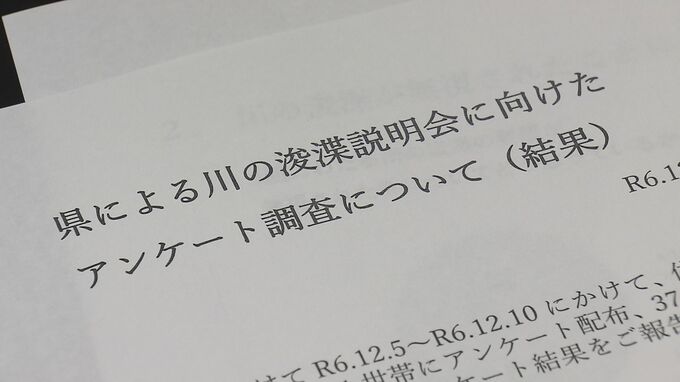 県による川の浚渫説明会に向けた
アンケート調査について（結果）
R6.12
けて R6.12.5～R6.12.10 にかけて、住
世帯にアンケート配布、37
ケート結果をご報告